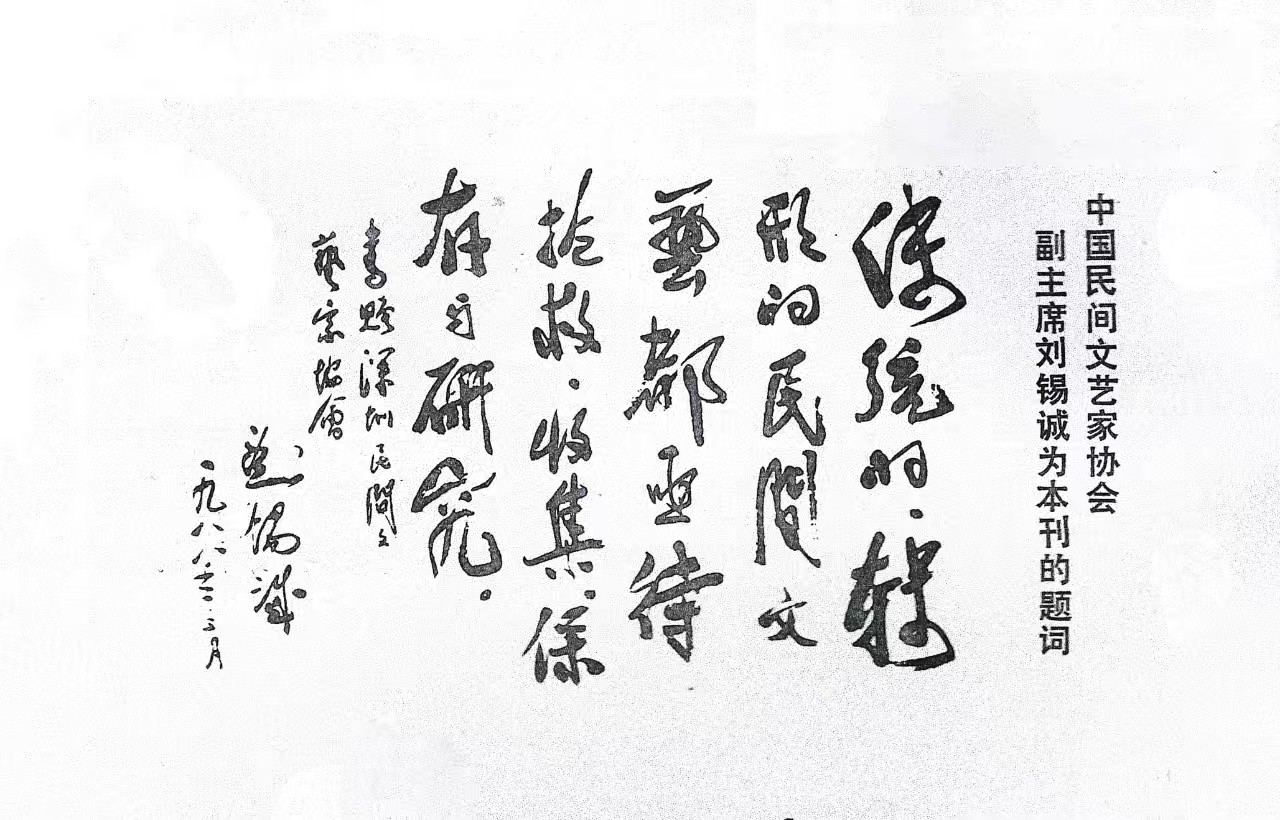 中国民间文艺家协会
副主席刘锡诚为本刊的题词
传统的、转
形的民间文
藝都亟待
抢救、收集、保
存与研究。
书赠深圳民間文
藝家协會
刘锡诚
一九八八年二月